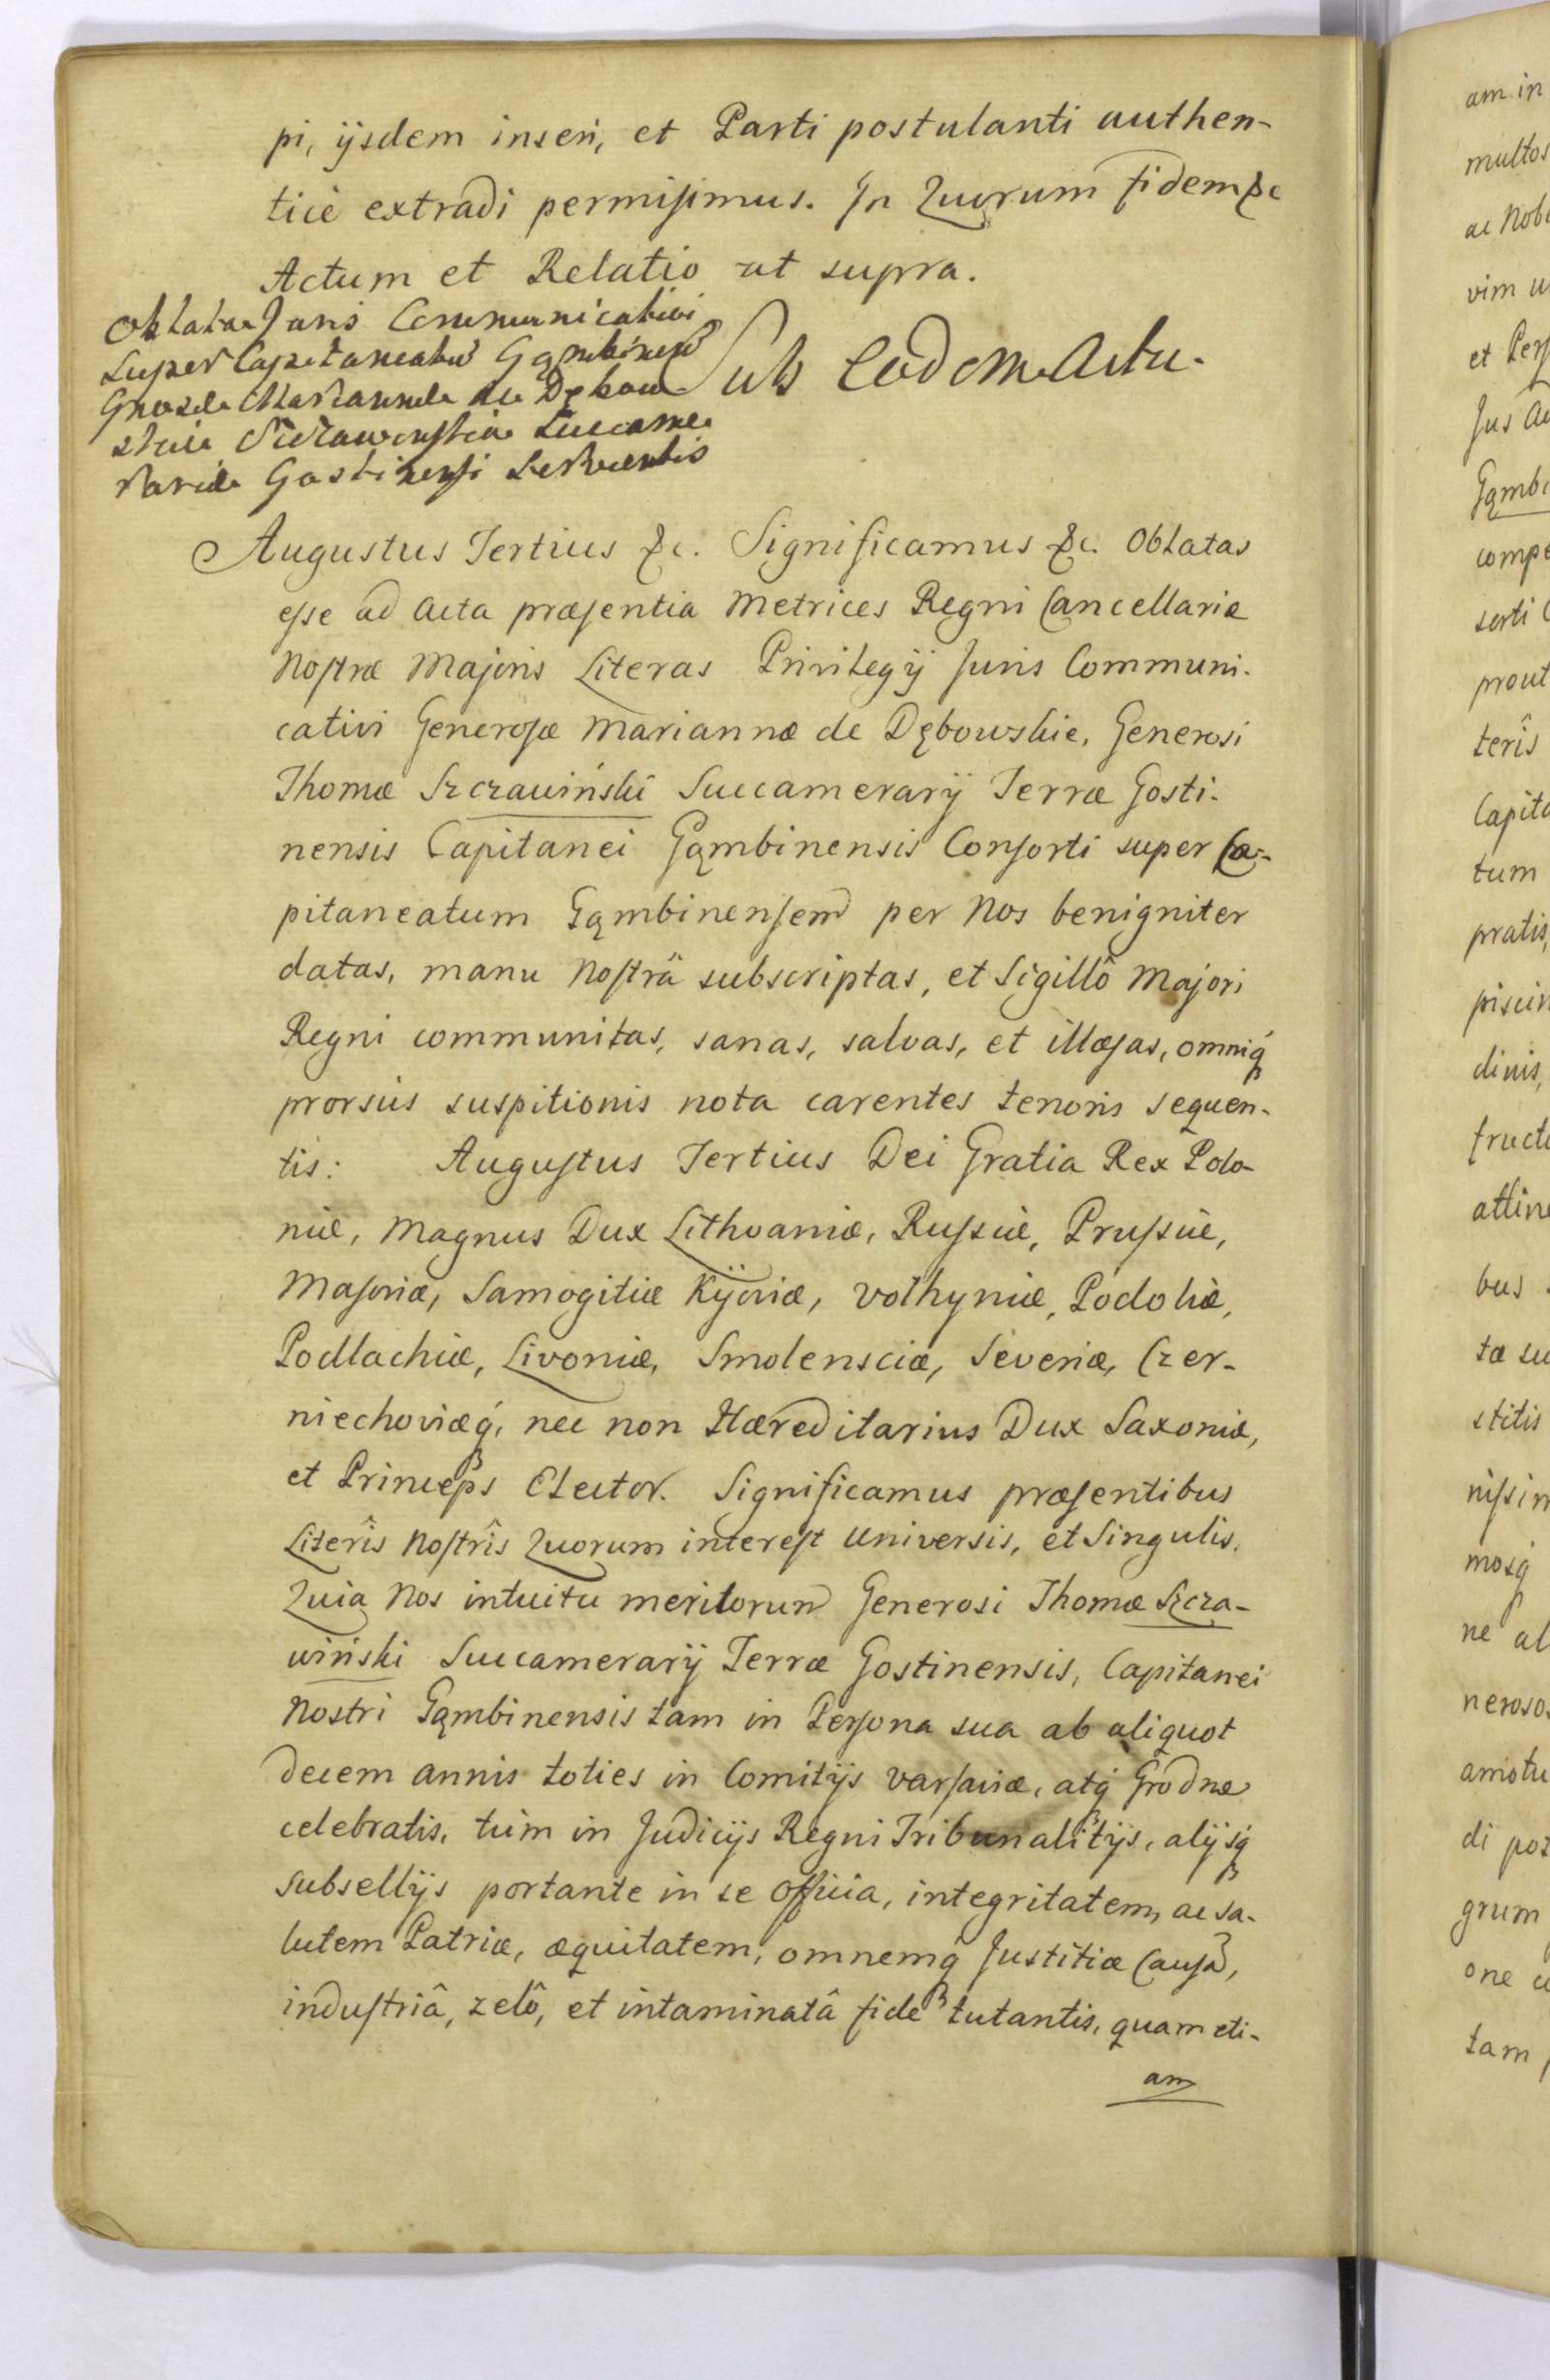 pi, ijsdem inseri, et Parti postulanti authen-
ticè extradi permisimus. In Quorum fidem &c
Actum et Relatio ut supra.
Oblatae Juris Communicativi
super Capitaneatu Gąmbinen
Gnosae Mariannae de Dębow
skie Szczawinskie Succame
rariae Gostinensi Servientis
Sub Eodem Actu.
Augustus Tertius &c. Significamus &c. Oblatas
esse ad Acta præsentia Metrices Regni Cancellariæ
Nostræ Majoris Literas Privilegij Juris Communi-
cativi Generosæ Mariannæ de Dębowskie, Generosi
Thomæ Szczawiński Succamerarij Terræ Gosti-
nensis Capitanei Gąmbinensis Consorti super Ca-
pitaneatum Gąmbinensem per Nos benigniter
datas, manu Nostrâ subscriptas, et Sigillô Majori
Regni communitas, sanas, salvas, et illæsas, omniq́
prorsus suspitionis nota carentes tenoris sequen-
tis: Augustus Tertius Dei Gratia Rex Polo-
niæ, Magnus Dux Lithvaniæ, Russiæ, Prussiæ,
Masoviæ, Samogitiæ Kijoviæ, Volhyniæ, Podoliæ,
Podlachiæ, Livoniæ, Smolensciæ, Severiæ, Czer-
niechoviæq́, nec non Hæreditarius Dux Saxoniæ,
et Princeps Elector. Significamus præsentibus
Literîs Nostrîs Quorum interest Universis, et Singulis.
Quia Nos intuitu meritorum Generosi Thomæ Szcza-
wiński Succamerarij Terræ Gostinensis, Capitanei
Nostri Gąmbinensis tam in Persona sua ab aliquot
decem annis toties in Comitijs Varsaviæ, atq́ Grodnæ
celebratis, tùm in Judicijs Regni Tribunalitijs, alijsq́
subsellijs portante in se officia, integritatem, ac sa-
lutem Patriæ, æquitatem, omnemq́ Justitiæ Causã,
industriâ, zelô, et intaminatâ fide tutantis, quam eti-
am